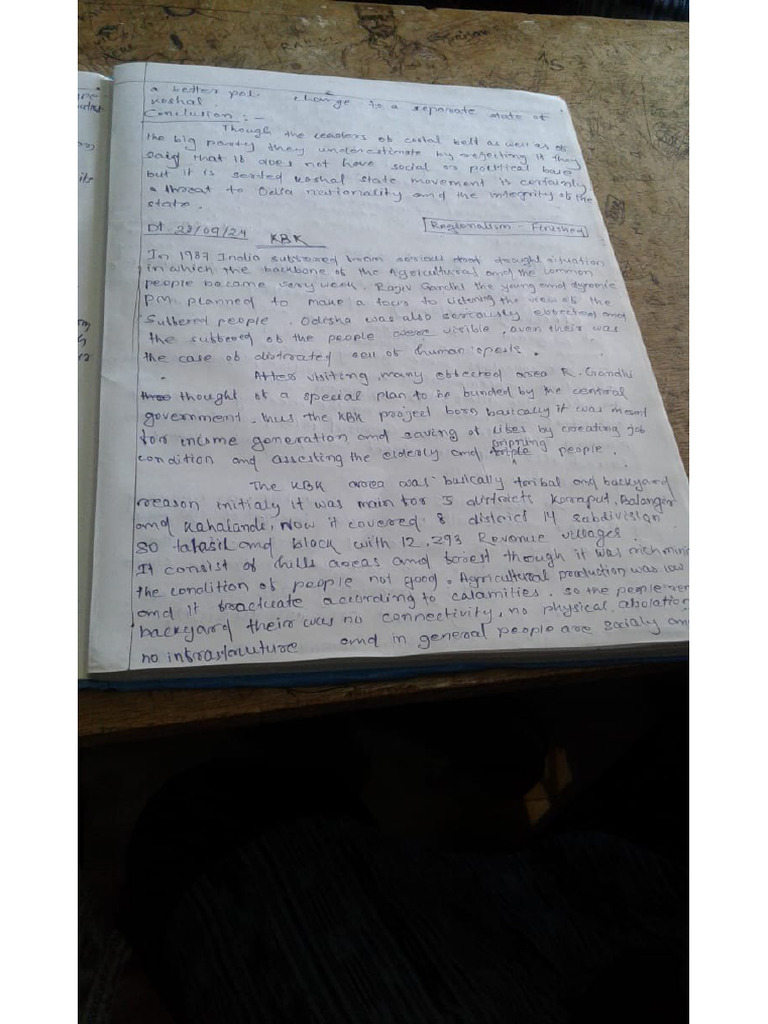 a better pol. change to a separate state of
Koshal.
Conclusion :-
Though the leaders of costal belt as well as of
the big party they underestimate by rejecting it they
said that it does not have social or political base
but it is sented koshal state movement is certainly
a threat to Odia nationality and the integrity of the
state.
Regionalism - Finished
Dt. 28/09/24 KBK
In 1987 India suffered from serious drought situation
in which the backbone of the Agricultural and the common
people became very week. Rajiv Gandhi the young and dynamic
P.M. planned to make a focus to listening the view of the
suffered people. Odisha was also seriously effected and
the suffered of the people were visible, even their was
the case of distrated sell of human
After visiting many effected area R. Gandhi
thought of a special plan to be funded by the central
government, thus the KBK project born basically it was meant
for income generation and saving of lifes by creating job
condition and assesting the elderly and people.
The KBK area was basically tribal and backyard
reason initialy it was main for 3 districts Koraput, Balangir
and Kahalandi, Now it covered 8 district 14 subdivision
80 tahasil and block with 12,293 Revenue villages.
It consist of hills areas and forest though it was rich
the condition of people not good. Agricultural production was low
and it fractuate according to calamities. so the people
backyard their was no connectivity, no physical,
no infrastructure and in general people are socialy